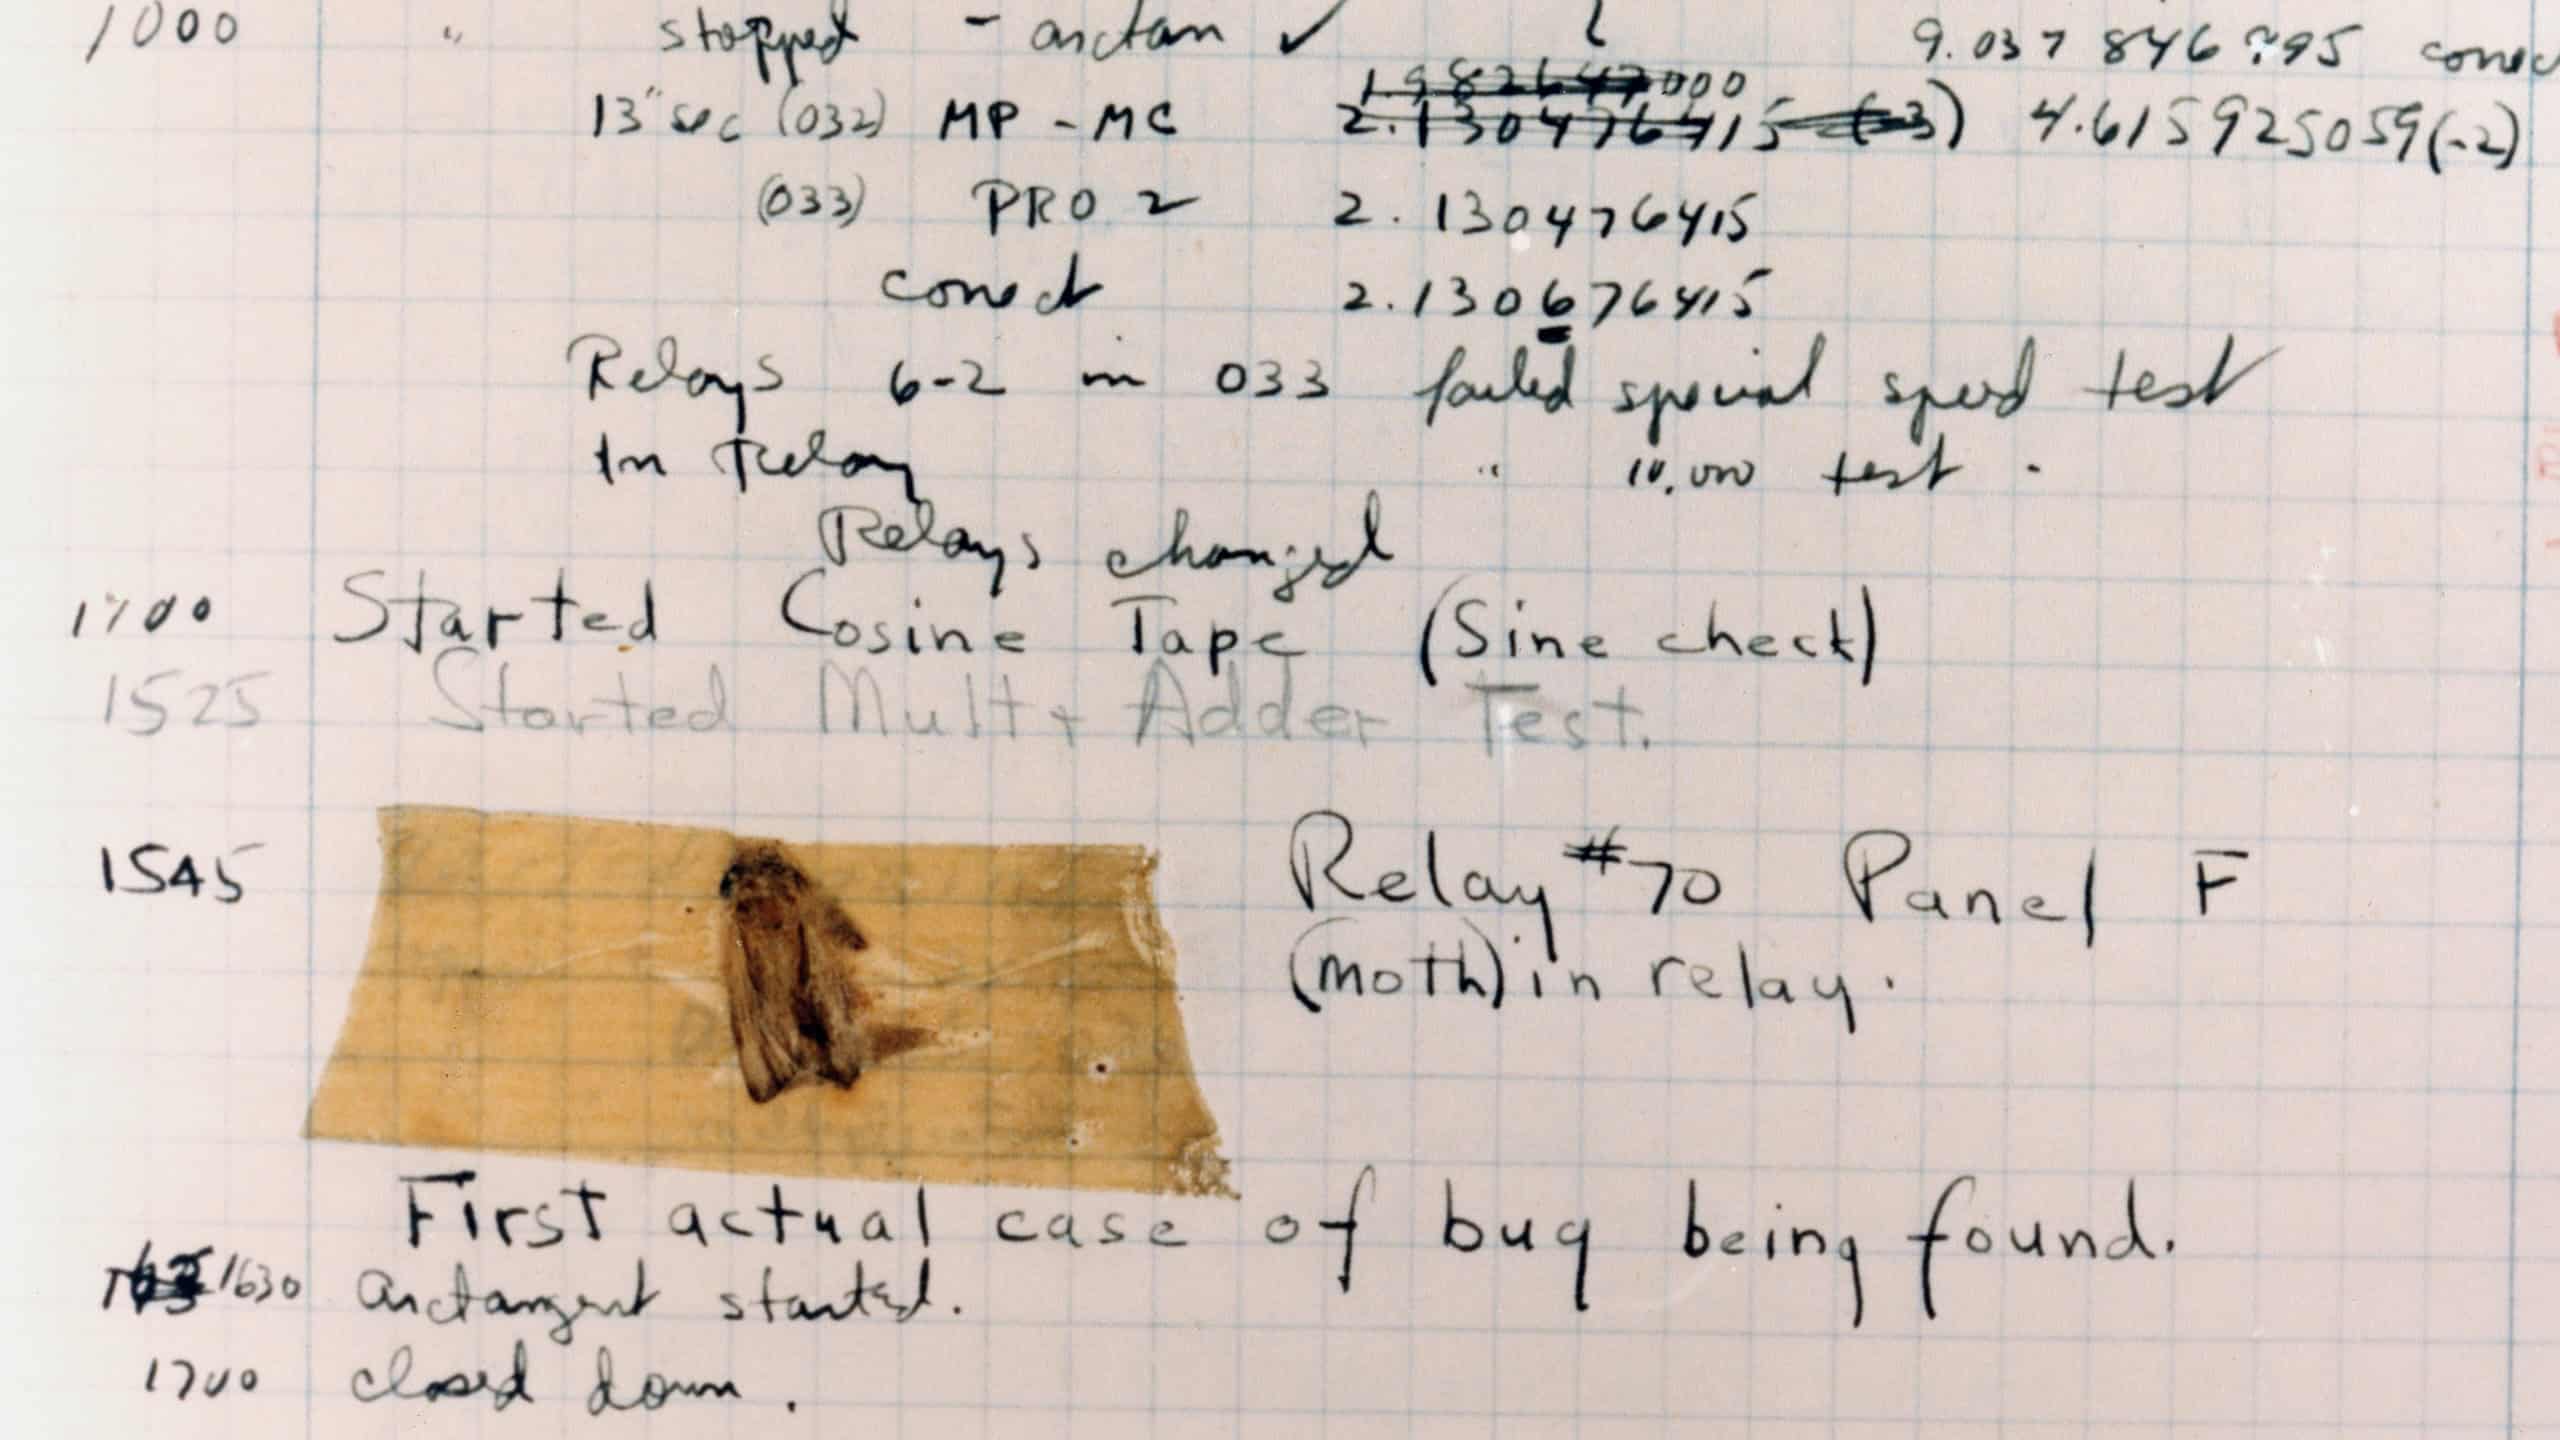 1000 " stopped - arctan ✓ 9.037 846 795 correct
1.982647000
13" sec (032) MP - MC 2.130476415 (-3) 4.615925059(-2)
(033) PRO 2 2.130476415
correct 2.130676415
Relays 6-2 in 033 failed special speed test
In Relay " 10,000 test .
Relays changed
Started Cosine Tape (Sine check)
1525 Started Mult + Adder Test.
1545 Relay #70 Panel F
(moth) in relay.
First actual case of bug being found.
1630 arctangent started.
1700 closed down.